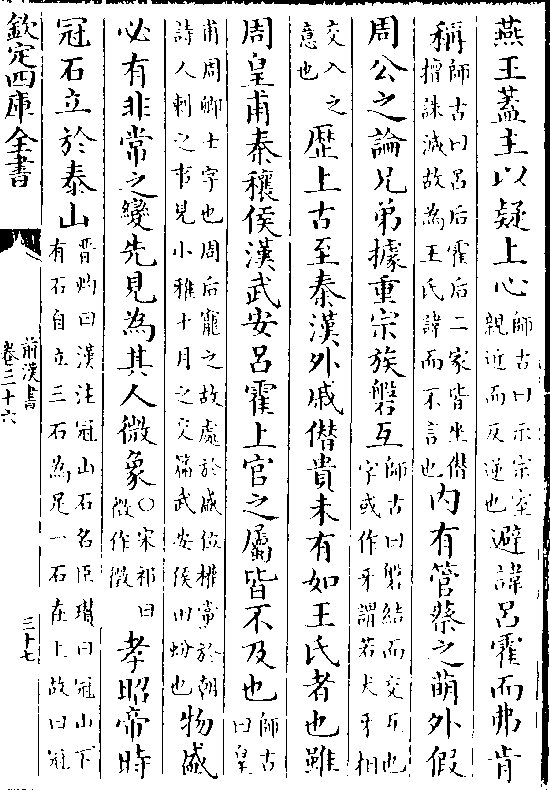 燕王蓋主以疑上心師古曰示宗室親近而反逆也避諱呂霍而弗肯
稱師古曰呂后霍后二家皆坐僣擅誅滅故為王氏諱而不言也内有管蔡之萌外假
周公之論兄弟據重宗族磐互師古曰磐結而交互也字或作牙謂若犬牙相
交入之意也歴上古至秦漢外戚僣貴未有如王氏者也雖
周皇甫秦穰侯漢武安呂霍上官之屬皆不及也師古曰皇
甫周卿士字也周后寵之故處於盛位權黨於朝詩人刺之事見小雅十月之交篇武安侯田蚡也物盛
必有非常之變先見為其人微象○宋祁曰微作徵孝昭帝時
冠石立於泰山晉灼曰漢注冠山石名臣瓚曰冠山下有石自立三石為足一石在上故曰冠
欽定四庫全書
前漢書
卷三十六
三十七